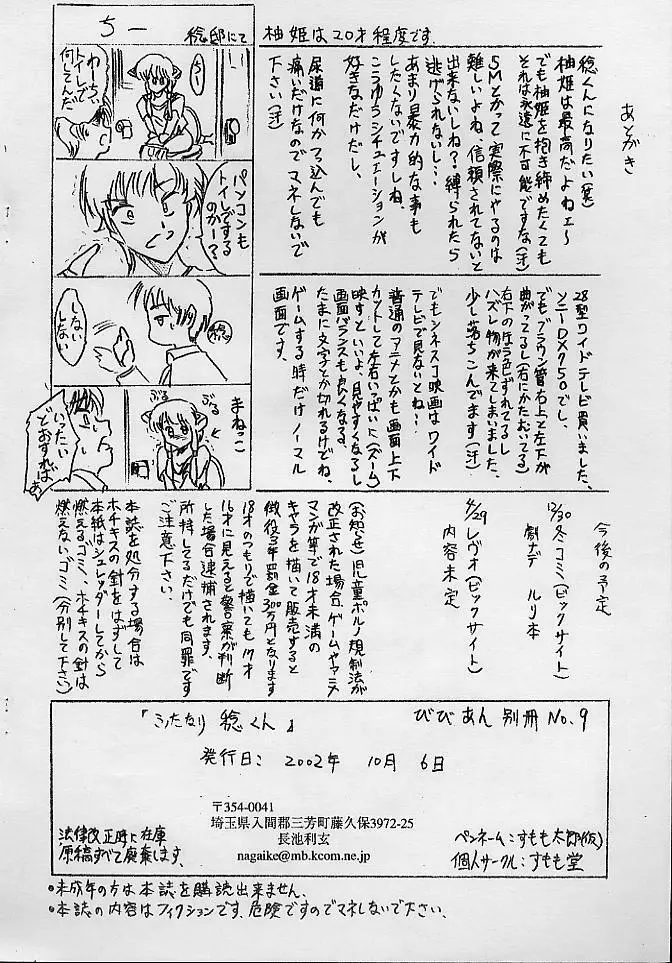 あとがき
稔くんになりたい(笑)
柚姫は最高だよねェ〜
でも柚姫を抱き締めたくても
それは永遠に不可能ですな(汗)
SMとかって実際にやるのは
難しいよね、信頼されてないと
出来ないしね?縛られたら
逃げられないし…
あまり暴力的な事も
したくないですしね、
こうゆうシチュエーションが
好きなだけだし、
尿道に何かつっ込んでも
痛いだけなのでマネしないで
下さい(汗)
柚姫は20才程度です.
稔邸にて
ちー
ちぃ
わーちぃ
トイレで
何してんだ
パソコンも
トイレするの
のかー?
稔
しない
しない
まねっこ
ぷる
ぷる
いったい
どおすれば
あ
28型ワイドテレビ買いました、
ソニーDX750でし、
でもブラウン管右上と左下が
曲がってるし(右にかたむいてる)
右下の方う色ずれてるし
ハズレ物が来てしまいました、
少し落ちこんでます(汗)
でもシネスコ映画はワイド
テレビで見ないとね!
普通のアニメとかも画面上下
カットして左右いっぱいに(ズーム)
映すといいよ、見やすくなるし
画面バランスも良くなる、
たまに文字とか切れるけどね、
ゲームする時だけノーマル
画面です、
今後の予定
12/30冬コミ(ビックサイト)
劇ナデ ルリ本
4/29レヴォ(ビックサイト)
内容未定
(お知らせ)児童ポルノ規制法が
改正された場合、ゲームやアニメ
マンガ等で18才未満の
キャラを描いて販売すると
懲役3年罰金300万円となります
18才のつもりで描いても17才
16才に見えると警察が判断
した場合逮捕されます、
所持してるだけでも同罪です
ご注意下さい、
本誌を処分する場合は
ホチキスの針をはずして
本紙はシュレッダーしてから
燃えるゴミ、ホチキスの針は
燃えないゴミ(分別して下さい)
『ふたなり 稔くん』 びびあん 別冊 No.9
発行日: 2002年 10月 6日
〒354-0041
埼玉県入間郡三芳町藤久保3972-25
長池利玄
nagaike@mb.kcom.ne.jp
法律改正時に在庫
原稿すべて廃棄します.
ペンネーム:すもも太郎(仮)
個人サークル:すもも堂
•未成年の方は本誌を購読出来ません.
•本誌の内容はフィクションです.危険ですのでマネしないで下さい.